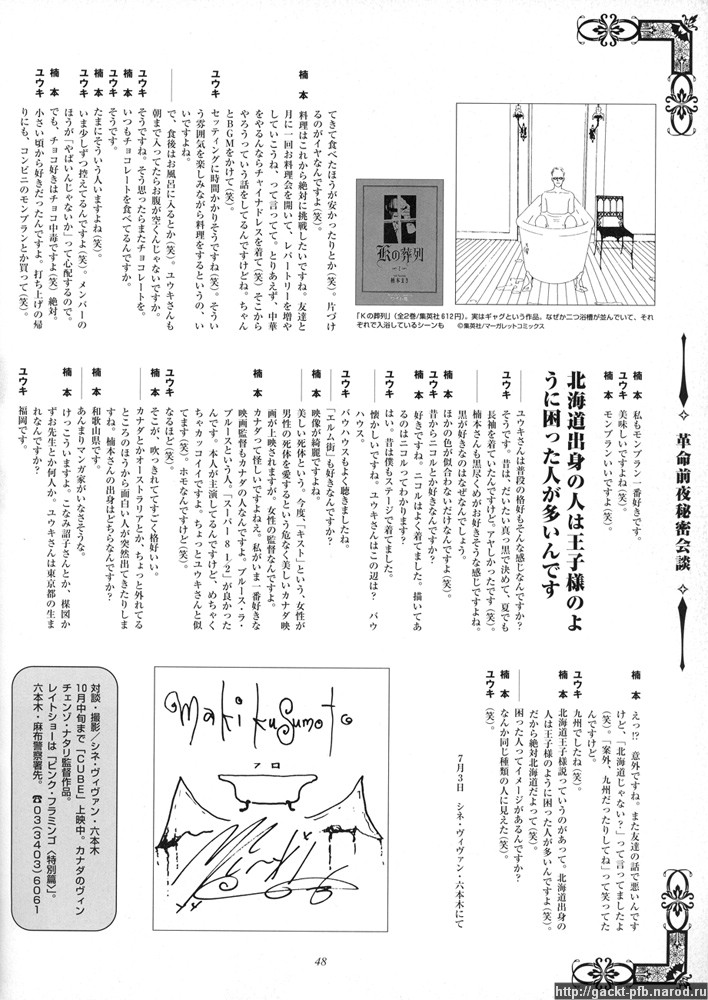 革命前夜秘密会談
てきて食べたほうが安かったりとか(笑)。片づけ
るのがイヤなんですよ(笑)。
楠本　料理はこれから絶対に挑戦したいですね。友達と
月に一回お料理会を開いて、レパートリーを増や
していこうね、って言ってて。とりあえず、中華
をやるんならチャイナドレスを着て(笑)そこから
やろうっていう話をしてるんですけどね。ちゃん
とBGMをかけて(笑)。
ユウキ　セッティングに時間かかりそうですね(笑)。そうい
う雰囲気を楽しみながら料理をするというの、い
いですよね。
――で、食後はお風呂に入るとか(笑)。ユウキさんも
朝まで入ってたらお腹が空くんじゃないですか。
ユウキ　そうですね。そう思ったらまたチョコレートを。
楠本　いつもチョコレートを食べてるんですか。
ユウキ　そうです。
楠本　たまにそういう人いますよね(笑)。
ユウキ　いま少しずつ控えてるんですよ(笑)。メンバーの
ほうが「やばいんじゃないか」って心配するので。
楠本　でも、チョコ好きはチョコ中毒ですよ(笑)　絶対。
ユウキ　小さい頃から好きだったんですよ。打ち上げの帰
りにも、コンビニのモンブランとか買って(笑)。
Kの葬列
「Kの葬列」(全2巻/集英社612円)。実はギャグという作品。なぜか二つ浴槽が並んでいて、それ
ぞれで入浴しているシーンも　©集英社/マーガレットコミックス
楠本　私もモンブラン一番好きです。
ユウキ　美味しいですよね(笑)。
楠本　モンブランいいですよ(笑)。
北海道出身の人は王子様のよ
うに困った人が多いんです
――ユウキさんは普段の格好もそんな感じなんですか？
ユウキ　そうです。昔は、だいたい真っ黒で決めて、夏でも
長袖を着ていたんですけど。アヤしかったです(笑)。
――楠本さんも黒尽くめがお好きそうな感じですよね。
黒が好きなのはなぜなんでしょう。
楠本　ほかの色が似合わないだけなんですよ(笑)。
――昔からニコルとか好きなんですか？
楠本　好きですね。ニコルはよく着てました。描いてあ
るのはニコルってわかります？
ユウキ　はい。昔は僕もステージで着てました。
――懐かしいですね。ユウキさんはこの辺は？　バウ
ハウス。
ユウキ　バウハウスもよく聴きましたね。
――「エルム街」も好きなんですか？
楠本　映像が綺麗ですよね。
――美しい死体という。今度、「キスト」という、女性が
男性の死体を愛するという危なく美しいカナダ映
画が上映されますが、女性の監督なんですよ。
楠本　カナダって怪しいですよねえ。私がいま一番好きな
映画監督もカナダの人なんですよ。ブルース・ラ・
ブルースという人。「スーパー8 1/2」が良かった
んです。本人が主演してるんですけど、めちゃく
ちゃカッコイイですよ。ちょっとユウキさんと似
てます(笑)。ホモなんですけど(笑)。
ユウキ　なるほど(笑)。
楠本　そこが、吹っきれててすごく格好いい。
――カナダとかオーストラリアとか、ちょっと外れてる
ところのほうから面白い人が突然出てきたりしま
すね。楠本さんの出身はどちらなんですか？
楠本　和歌山県です。
――あんまりマンガ家がいなさそうな。
楠本　けっこういますよ。こなみ詔子さんとか、楳図か
ずお先生とか何人か。ユウキさんは東京都の生ま
れなんですか？
ユウキ　福岡です。
楠本　えっ!?　意外ですね。また友達の話で悪いんです
けど、「北海道じゃない？」って言ってましたよ
(笑)。「案外、九州だったりしてね」って笑ってた
んですけど。
ユウキ　九州でしたね(笑)。
楠本　北海道王子様説っていうのがあって。北海道出身の
人は王子様のように困った人が多いんですよ(笑)。
だから絶対北海道だよって(笑)。
ユウキ　困った人ってイメージがあるんですか？
楠本　なんか同じ種類の人に見えた(笑)。
ユウキ　(笑)。
7月3日　シネ・ヴィヴァン・六本木にて
maki kusumoto
フロ
対談・撮影／シネ・ヴィヴァン・六本木
10月中旬まで「CUBE」上映中。カナダのヴィン
チェンゾ・ナタリ監督作品。
レイトショーは「ピンク・フラミンゴ〈特別篇〉」。
六本木・麻布警察署先。☎03(3403)6061
48
http://gackt-pfb.narod.ru